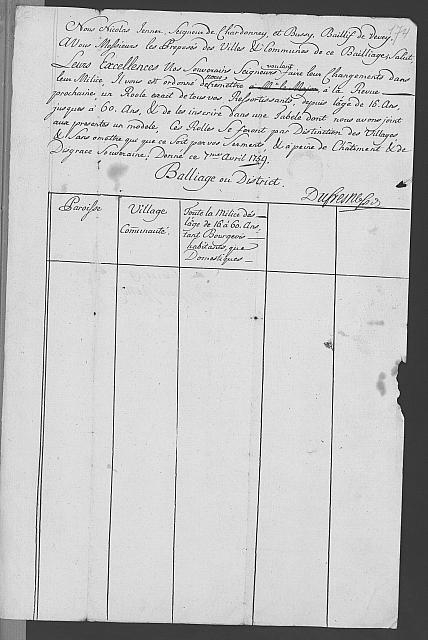 174
Nous Nicolas Jenner, Seigneur de Chardonney, et Bussy, Baillif de Vevey,
A Vous Messieurs les Preposés des Villes & Communes de ce Bailliage, Salut,
Leurs Excellences Nos Souverains Seigneurs voulant faire leur Changements dans
leur Milice, Il vous est ordonné de nous remettre a Mr. le Major à la Revue
prochaine un Role exact de tous vos Ressortissants, depuis l'âge de 16. Ans,
jusques à 60. Ans, & de les inscrire dans une Tabele dont nous avons joint
aux presentes un modele, Ces Rolles se feront par Distinction des Villages
& Sans omettre qui que ce soit par vos Serments, & a peine de Châtiment & de
Disgrace Souveraine; Donné ce 7me Avril 1759.
Balliage ou District.
Dufresne
Paroisse
Village
ou
Communauté.
Toute la Milice dès
l'âge de 16 à 60. Ans,
tant Bourgeois
habitants, que
Domestiques